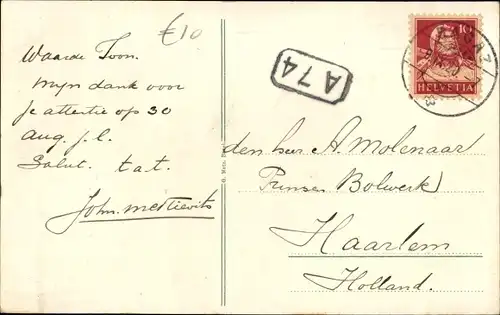 €10
Waarde Toon.
Mijn dank voor
je attentie op 30
aug. j.l.
Salut. t.a.t.
John.
A 74
10
HELVETIA
den heer A. Molenaar
Prinsen Bolwerk
Haarlem
Holland.